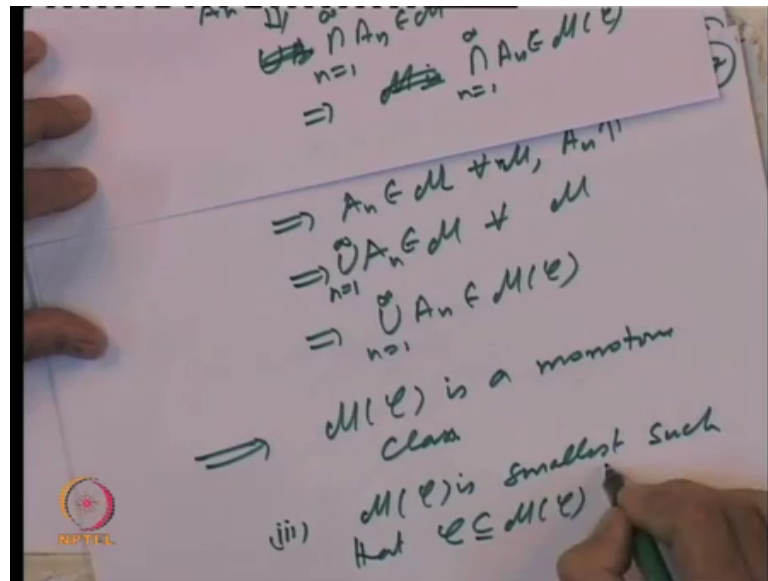 An ∈ M
∞
∩ An ∈ M
n=1
∞
⇒ ∩ An ∈ M(𝒞)
n=1
⇒ An ∈ M ∀ M, An ↑
∞
⇒ ∪ An ∈ M ∀ M
n=1
∞
⇒ ∪ An ∈ M(𝒞)
n=1
⇒ M(𝒞) is a monotone
class
(iii) M(𝒞) is smallest such
that 𝒞 ⊆ M(𝒞)
NPTEL